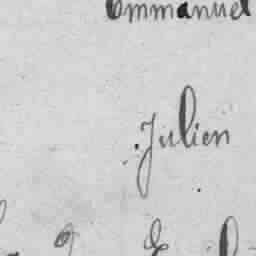 Emmanuel
Julien